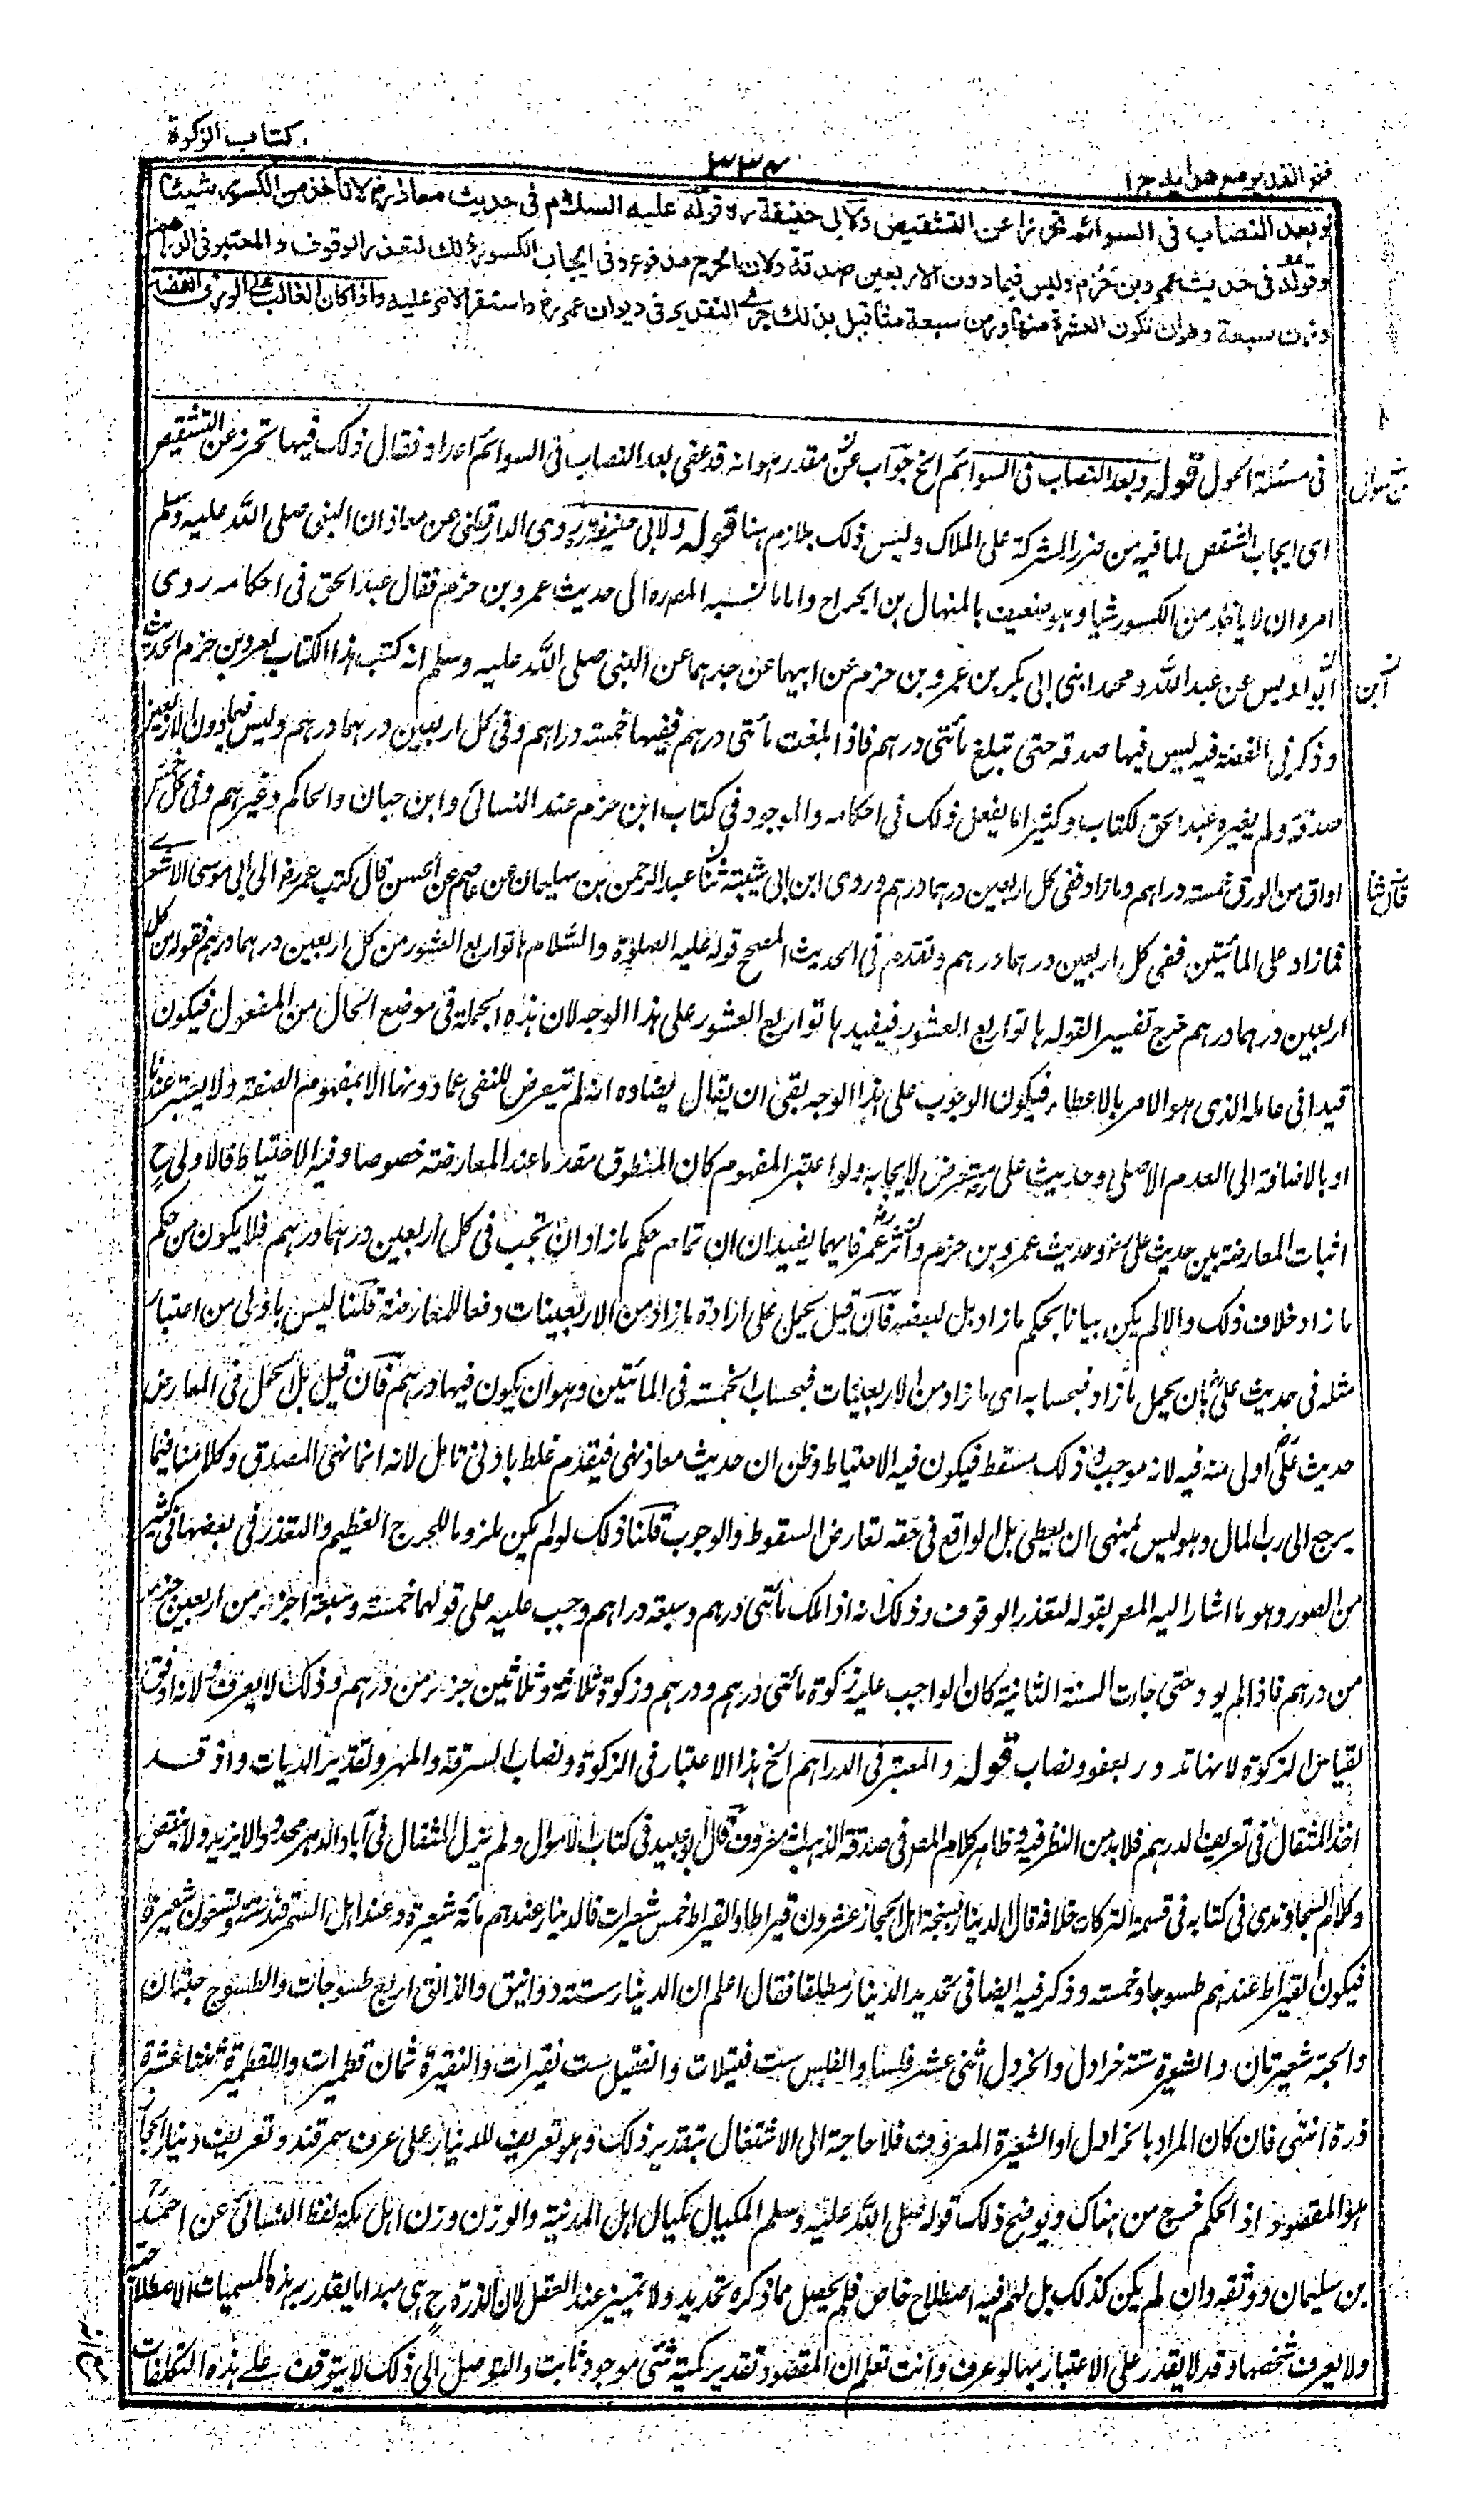 كتاب الزكوة
٣٣٤
فتح القدير مع هدايه ج ١
وبعد النصاب فى السوائم تحرزا عن التشقيص ولابى حنيفة ره قوله عليه السلام فى حديث معاذ رض لا تأخذ من الكسور شيئا
وقوله فى حديث عمرو بن حزم وليس فيما دون الاربعين صدقة ولان الحرج مدفوع وفى ايجاب الكسور ذلك لتعذر الوقوف والمعتبر فى الدراهم
وزن سبعة وهو ان تكون العشرة منها وزن سبعة مثاقيل بذلك جرى التقدير فى ديوان عمر رض واستقر الامر عليه واذا كان الغالب على الورق الفضة
فى مسئلة الحول قوله وبعد النصاب فى السوائم الخ جواب عن مقدر هو انه قد عفى بعد النصاب فى السوائم اعدادا فقال ذلك فيها تحرز عن التشقيص
عن سوال
اى ايجاب الشقص لما فيه من ضرر الشركة على الملاك وليس ذلك بلازم هنا قوله ولابى حنيفة ره روى الدارقطنى عن معاذ ان النبى صلى الله عليه وسلم
امره ان لا ياخذ من الكسور شيئا وهو ضعيف بالمنهال بن الجراح واما ما نسبه المصره الى حديث عمرو بن حزم فقال عبد الحق فى احكامه روى
ابو اويس عن عبد الله ومحمد ابنى ابى بكر بن عمرو بن حزم عن ابيهما عن جدهما عن النبى صلى الله عليه وسلم انه كتب هذا الكتاب لعمرو بن حزم الحديث
ابن
وذكر فى الفضة فيه ليس فيها صدقة حتى تبلغ مأتى درهم فاذا بلغت مأتى درهم ففيها خمسة دراهم وفى كل اربعين درهما درهم وليس فيما دون الاربعين
صدقة ولم يغيره عبد الحق لكتاب وكثيرا ما يفعل ذلك فى احكامه والموجود فى كتاب ابن حزم عند النسائى وابن حبان والحاكم وغيرهم وفى كل خمس
اواق من الورق خمسة دراهم وما زاد ففى كل اربعين درهما درهم وروى ابن ابى شيبة ثنا عبد الرحمن بن سليمان عن عاصم عن الحسن قال كتب عمر رض الى ابى موسى الاشعرى
قال ثنا
فما زاد على المأتين ففى كل اربعين درهما درهم وتقدم فى الحديث المصحح قوله عليه الصلوة والسلام هاتوا ربع العشور من كل اربعين درهما درهم فقوله من كل
اربعين درهما درهم خرج تفسيرا لقوله هاتوا ربع العشور فيفيد هاتوا ربع العشور على هذا الوجه لان هذه الجملة فى موضع الحال من المفعول فيكون
قيدا فى عامله الذى هو الامر بالاعطاء فيكون الوجوب على هذا الوجه بقى ان يقال يضاده انه لم يتعرض للنفى عما دونها الا بمفهوم الصفة ولا يعتبر عندنا
او بالاضافة الى العدم الاصلى وحديث على متعرض لايجابه ولو اعتبر المفهوم كان المنطوق مقدما عند المعارضة خصوصا وفيه الاحتياط فالاولى ح
اثبات المعارضة بين حديث على رض وحديث عمرو بن حزم واثر عمر فانهما يفيدان ان تمام حكم ما زاد ان تجب فى كل اربعين درهما درهم فلا يكون من حكم
ما زاد خلاف ذلك والا لم يكن بيانا بحكم ما زاد بل لبعضه فان قيل يحمل على ارادة ما زاد من الاربعينات دفعا للمعارضة قلنا ليس باولى من اعتبار
مثله فى حديث على بان يحمل ما زاد فبحسابه اى ما زاد من الاربعينات فبحساب الخمسة فى المأتين وهو ان يكون فيها درهم فان قيل بل يحمل فى المعارض
حديث على اولى منه فيه لانه موجب وذلك مسقط فيكون فيه الاحتياط وظن ان حديث معاذ نهى فيقدم غلط بادنى تامل لانه انما نهى المصدق وكلامنا فيما
يرجع الى رب المال وهو ليس بمنهى ان يعطى بل الواقع فى حقه تعارض السقوط والوجوب قلنا ذلك لو لم يكن ملزوما للحرج العظيم والتعذر فى بعضها فى كثير
من الصور وهو ما اشار اليه المصر بقوله لتعذر الوقوف وذلك انه اذا ملك مأتى درهم وسبعة دراهم وجب عليه على قولهما خمسة وسبعة اجزاء من اربعين جزءا
من درهم فاذا لم يود حتى جاءت السنة الثانية كان الواجب عليه زكوة مأتى درهم ودرهم وزكوة ثلاثة وثلاثين جزء من درهم وذلك لا يعرف ولانه اوفق
لقياس الزكوة لانها تدور بعفو ونصاب قوله والمعتبر فى الدراهم الخ هذا الاعتبار فى الزكوة ونصاب السرقة والمهر وتقدير الديات واذ قد
اخذ المثقال فى تعريف الدرهم فلابد من النظر فيه وظاهر كلام المصر فى صدقة الذهب انه معروف قال ابو عبيد فى كتاب الاموال ولم يزل المثقال فى آباد الدهر محدودا لا يزيد ولا ينقص
وكلام السجاوندى فى كتابه فى قسمة التركات خلافه قال الدينار بسنجة اهل الحجاز عشرون قيراطا والقيراط خمس شعيرات فالدينار عندهم مائة شعيرة وعند اهل السمرقند ستة وتسعون شعيرة
فيكون القيراط عندهم طسوجا وخمسة وذكر فيه ايضا فى تحديد الدينار مطلقا فقال اعلم ان الدينار ستة دوانيق والدانق اربع طسوجات والطسوج حبتان
والحبة شعيرتان والشعيرة ستة خرادل والخردل اثنى عشر فلسا والفلس ست فتيلات والفتيل ست نقيرات والنقيرة ثمان قطميرات والقطميرة ثنتا عشرة
ذرة انتهى فان كان المراد بالخرادل او الشعيرة المعروفة فلا حاجة الى الاشتغال بتقدير ذلك وهو تعريف للدينار على عرف سمرقند وتعريف دينار الحجاز
هو المقصود اذ الحكم خرج من هناك ويوضح ذلك قوله صلى الله عليه وسلم المكيال مكيال اهل المدينة والوزن وزن اهل مكة لفظ النسائى عن احمد
بن سليمان ووثقه وان لم يكن كذلك بل لهم فيه اصطلاح خاص فلم يحصل مما ذكره تحديد ولا تمييز عند العقل لان الذرة ح هى مبدا ما يقدر به هذه المسميات الاصطلاحية
ولا يعرف شخصها وقد لا يقدر على الاعتبار بها لو عرف وانت تعلم ان المقصود تقدير كمية شئ موجود ثابت والتوصل الى ذلك لا يتوقف على هذه التكلفات